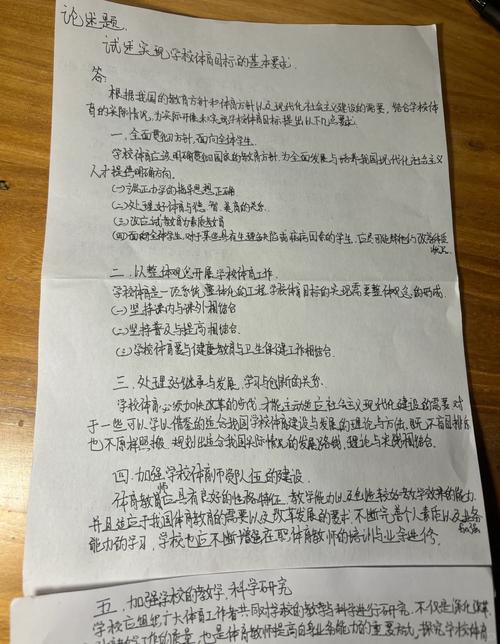 论述题.
试述实现学校体育目标的基本要求.
答:
根据我国的教育方针和体育方针以及现代化社会主义建设的需要, 结合学校体
育的实际情况, 为实际开展和实现学校体育目标, 提出以下几点要求:
一. 全面贯彻方针, 面向全体学生.
学校体育应该明确贯彻国家的教育方针, 为全面发展与培养我国现代化社会主义
人才提供明确方向.
(一)端正办学的指导思想, 正确
(二)处理好体育与德、智、美育的关系.
(三)改应试教育为素质教育
(四)面向全体学生, 对于某些具有生理缺陷或有病因素的学生, 应尽可能帮他们改善体质
状况.
二. 以整体观念开展学校体育工作.
学校体育是一项系统, 整体化的工程, 学校体育目标的实现需要整体观念的形成.
(一)坚持课内与课外相结合
(二)坚持普及与提高相结合.
(三)学校体育要与健康教育与卫生保健工作相结合.
三. 处理好继承与发展, 学习与创新的关系.
学校体育必须加快改革的步伐, 才能主动适应社会主义现代化建设的需要. 对
于一些可以学以借鉴的适合我国学校体育建设与发展的理论与方法, 既不盲目排斥
也不原样照搬. 规划出适合我国实际情况的发展路线, 理论与实践相结合.
四. 加强学校体育师资队伍的建设.
体育教育师应具有良好的性格特征, 教学能力以及创造较好教学效果的能力.
并且适应于我国体育教育的需要以及改革发展的要求. 不断完善个人素质以及业务
能力的学习. 学校也应不断增强在职体育教师的培训与业余进修.
五. 加强学校的教学, 科学研究
学校应组织广大体育工作者共同对学校的教学与科学进行研究. 不仅是深化改革
工作的质量, 也是体育教师提高业务能力的重要标志, 探究学校体育